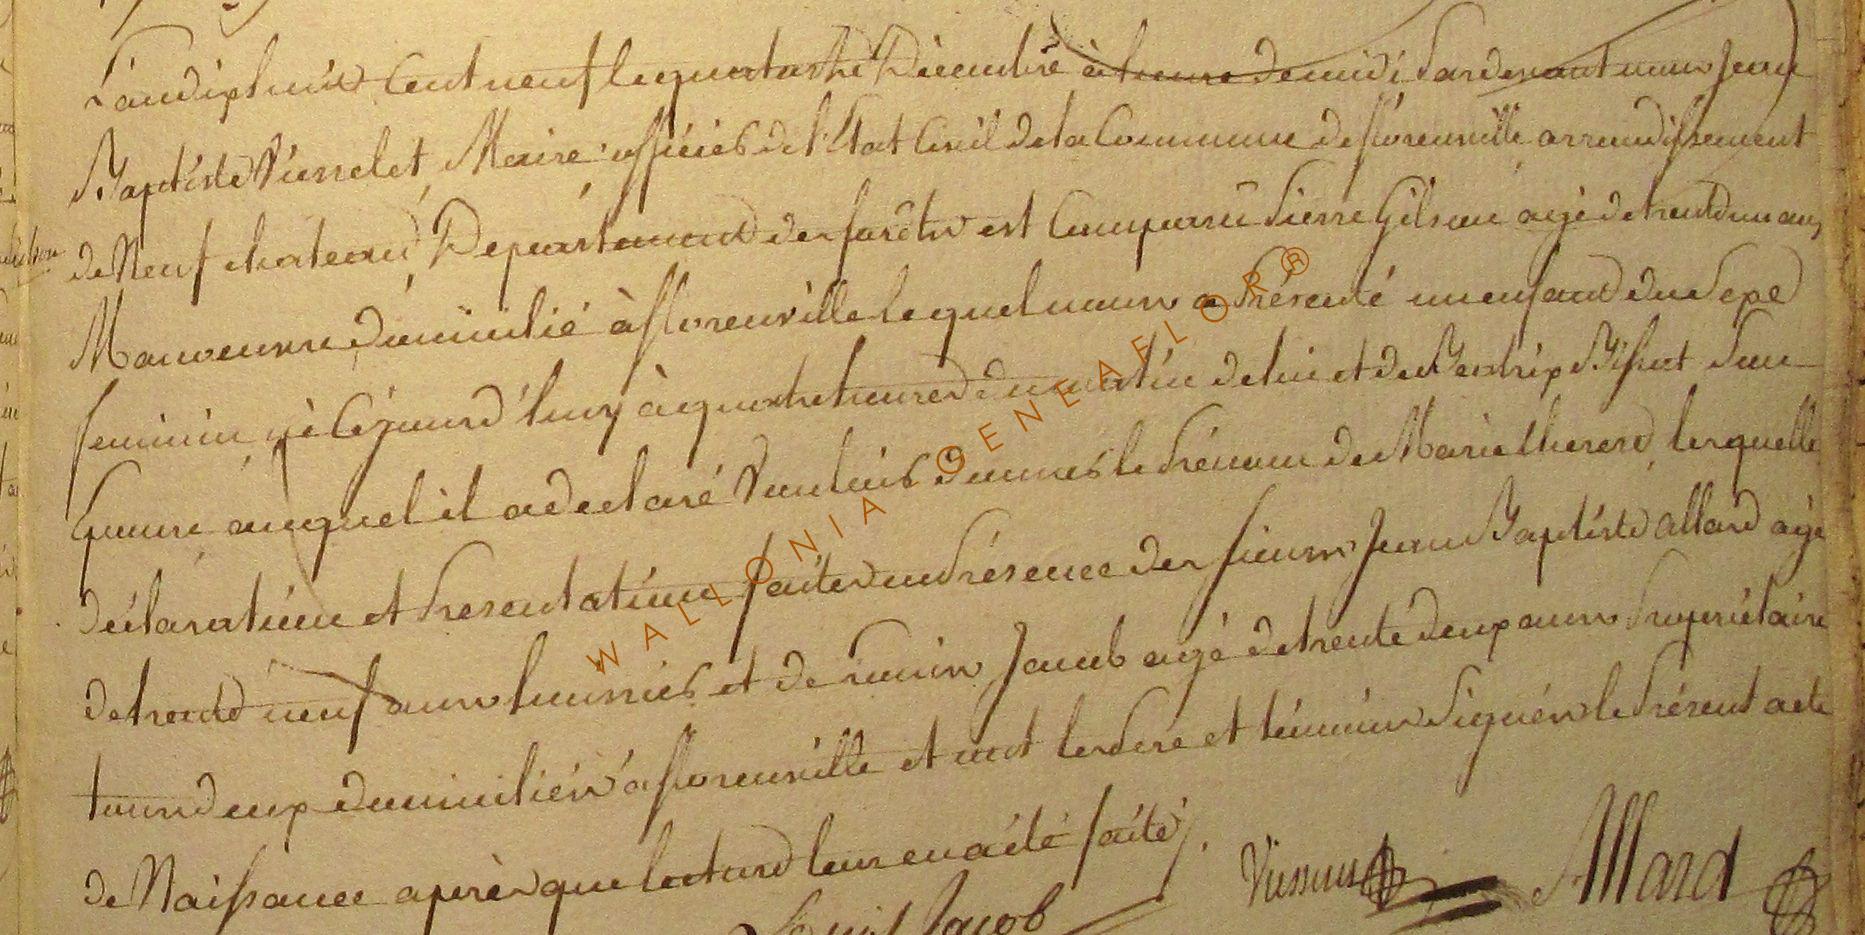 L'an dix huit Cent neuf le quatorze Décembre à heure de midi Pardevant nous Jean
Baptiste Viesselet Maire officier de l'Etat Civil de la Commune de florenville arrondissement
de Neufchateau, Departement des forêts est Comparu Pierre Gilson agé de trente un ans
Manoeuvre domicilié à florenville lequel nous a Présenté un enfant du Sexe
feminin né Cejourd'huy à quatre heures du matin de lui et de Beatrix Son
Epouse auquel il a declaré Vouloir donner le Prénom de Marie therese, lesquelle
déclaration et Presentation faites en Présence des sieurs Jean Baptiste allard agé
de trente neuf ans et de Jacob agé de trente deux ans Propriétaire
tous deux domiciliés à florenville et ont le Pere et témoins Signés le Présent acte
de Naissance après que lecture leur en a été faite.
Allard
Jacob
WALLONIA GENEAFLOR ®